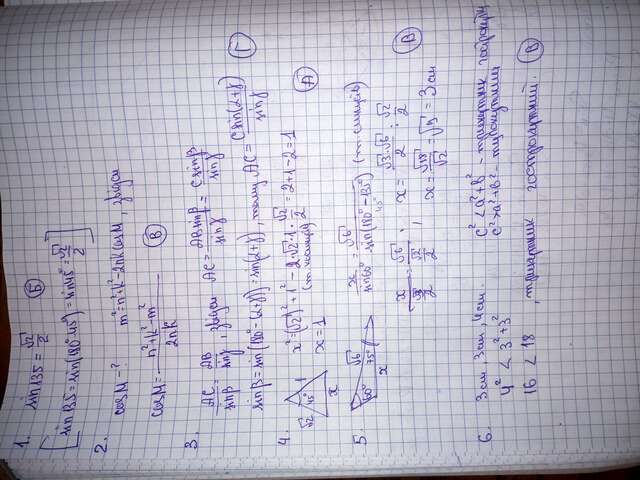 1. sin135 = √2/2 Б
[sin135 = sin(180°-45°) = sin45° = √2/2]
2. cosM - ? m² = n² + k² - 2nk cosM, звідси
cosM = (n² + k² - m²)/2nk В
3. AC/sinβ = AB/sinγ, звідси AC = AB sinβ/sinγ = c sinβ/sinγ
sinβ = sin(180° - (α+γ)) = sin(α+γ), тому AC = c sin(α+γ)/sinγ Г
4. √2 45° 1 x x² = (√2)² + 1² - 2·√2·1·√2/2 = 2+1-2 = 1
x = 1 (т. косинусів) А
5. √6 60° 75° x x/sin60° = √6/sin(180°-135°) (т. синусів)
45°
x/(√3/2) = √6/(√2/2), x = √3·√6/2 : √2/2
x = √18/√2 = √9 = 3 см В
6. 3 см, 3 см, 4 см. c² < a² + b² - трикутник гострокутн
4² < 3² + 3² c² > a² + b² - тупокутний
16 < 18, трикутник гострокутний. В